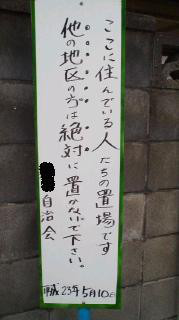 ここに住んでいる人たちの置場です
他の地区の方は絶対に置かないで下さい。
自治会
平成23年5月10日